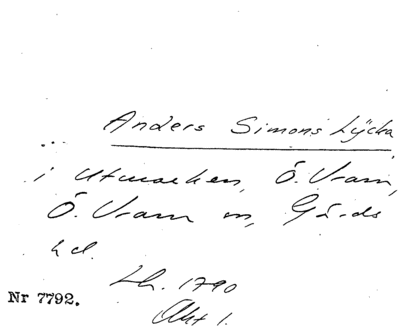 ... Anders Simons Lÿcka
i Utmarken, Ö. Vram,
Ö. Vram sn, Gärds
hd.
Lh. 1790
Nr 7792.
Akt 1.